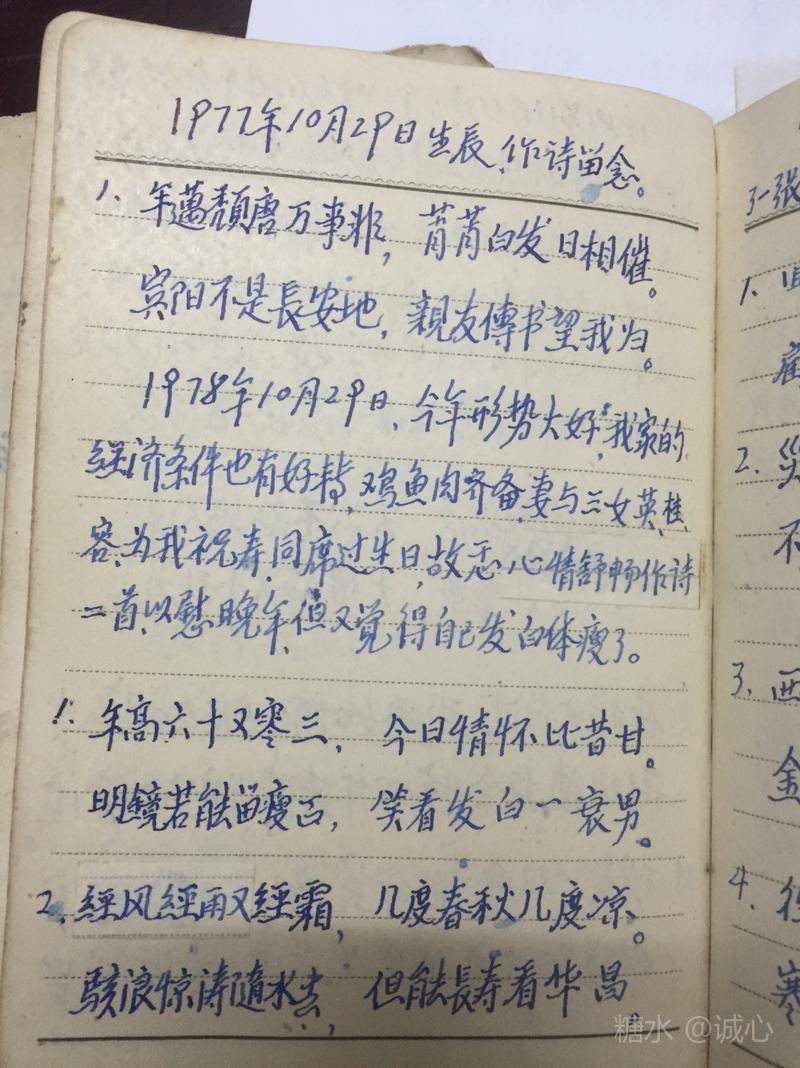 1977年10月29日生辰，作诗留念。
1、年邁頹唐万事非，菁菁白发日相催。
宾阳不是長安地，親友傳书望我归。
1978年10月29日，今年形势大好，我家的
经济条件也有好转，鸡鱼肉齐备，妻与三女英、桂、
容、为我祝寿，同席过生日，故 心情舒畅作诗
二首，以慰晚年，但又觉得自己发白体瘦了。
1、年高六十又零三，今日情怀比昔甘。
明鏡若能留瘦 ，笑看发白一衰男。
2、經风經雨又經霜，几度春秋几度凉。
駭浪惊涛隨水去，但能長寿看华昌。
了一张
1、
2、災
不
3、西
金
4、
寒
糖水 @诚心